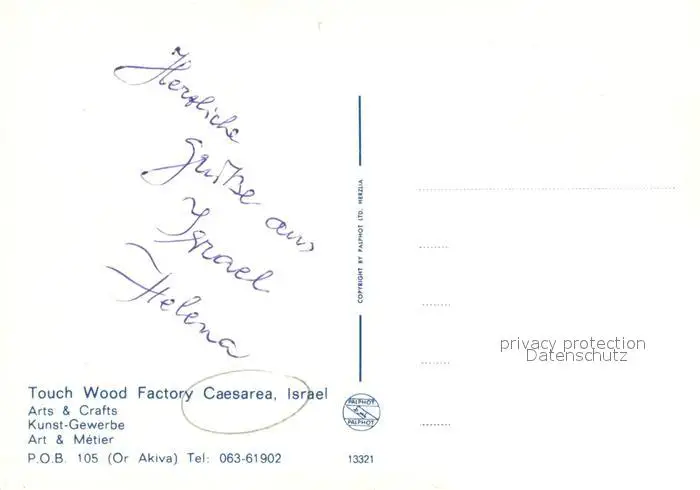 Herzliche
Grüße aus
Israel
Helena
Touch Wood Factory Caesarea, Israel
Arts & Crafts
Kunst-Gewerbe
Art & Métier
P.O.B. 105 (Or Akiva) Tel: 063-61902
COPYRIGHT BY PALPHOT LTD. HERZLIA
PALPHOT
PALPHOT
13321
privacy protection
Datenschutz